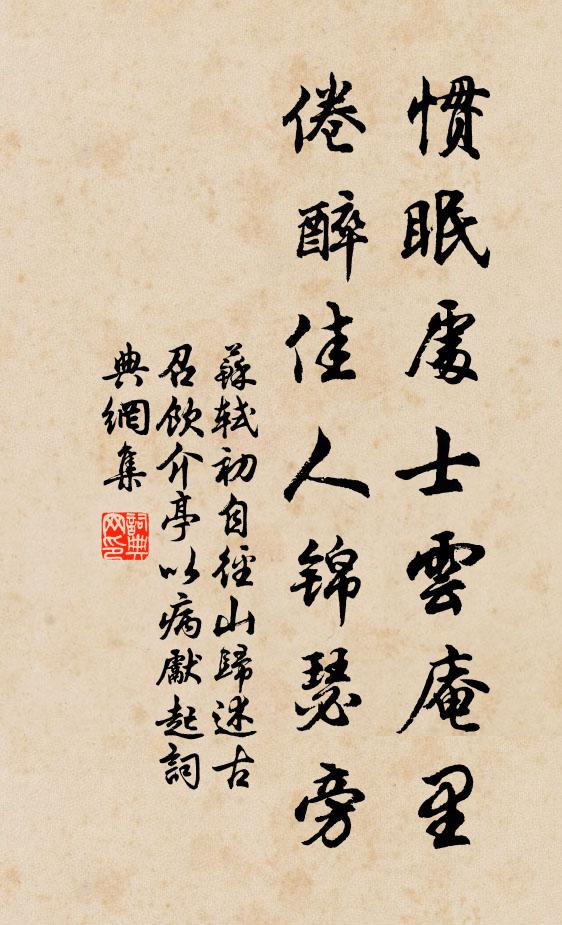 慣眠處士雲庵里
倦醉佳人錦瑟旁
蘇軾初自徑山歸述古
召飲介亭以病獻起詞
典網集
詞典网印